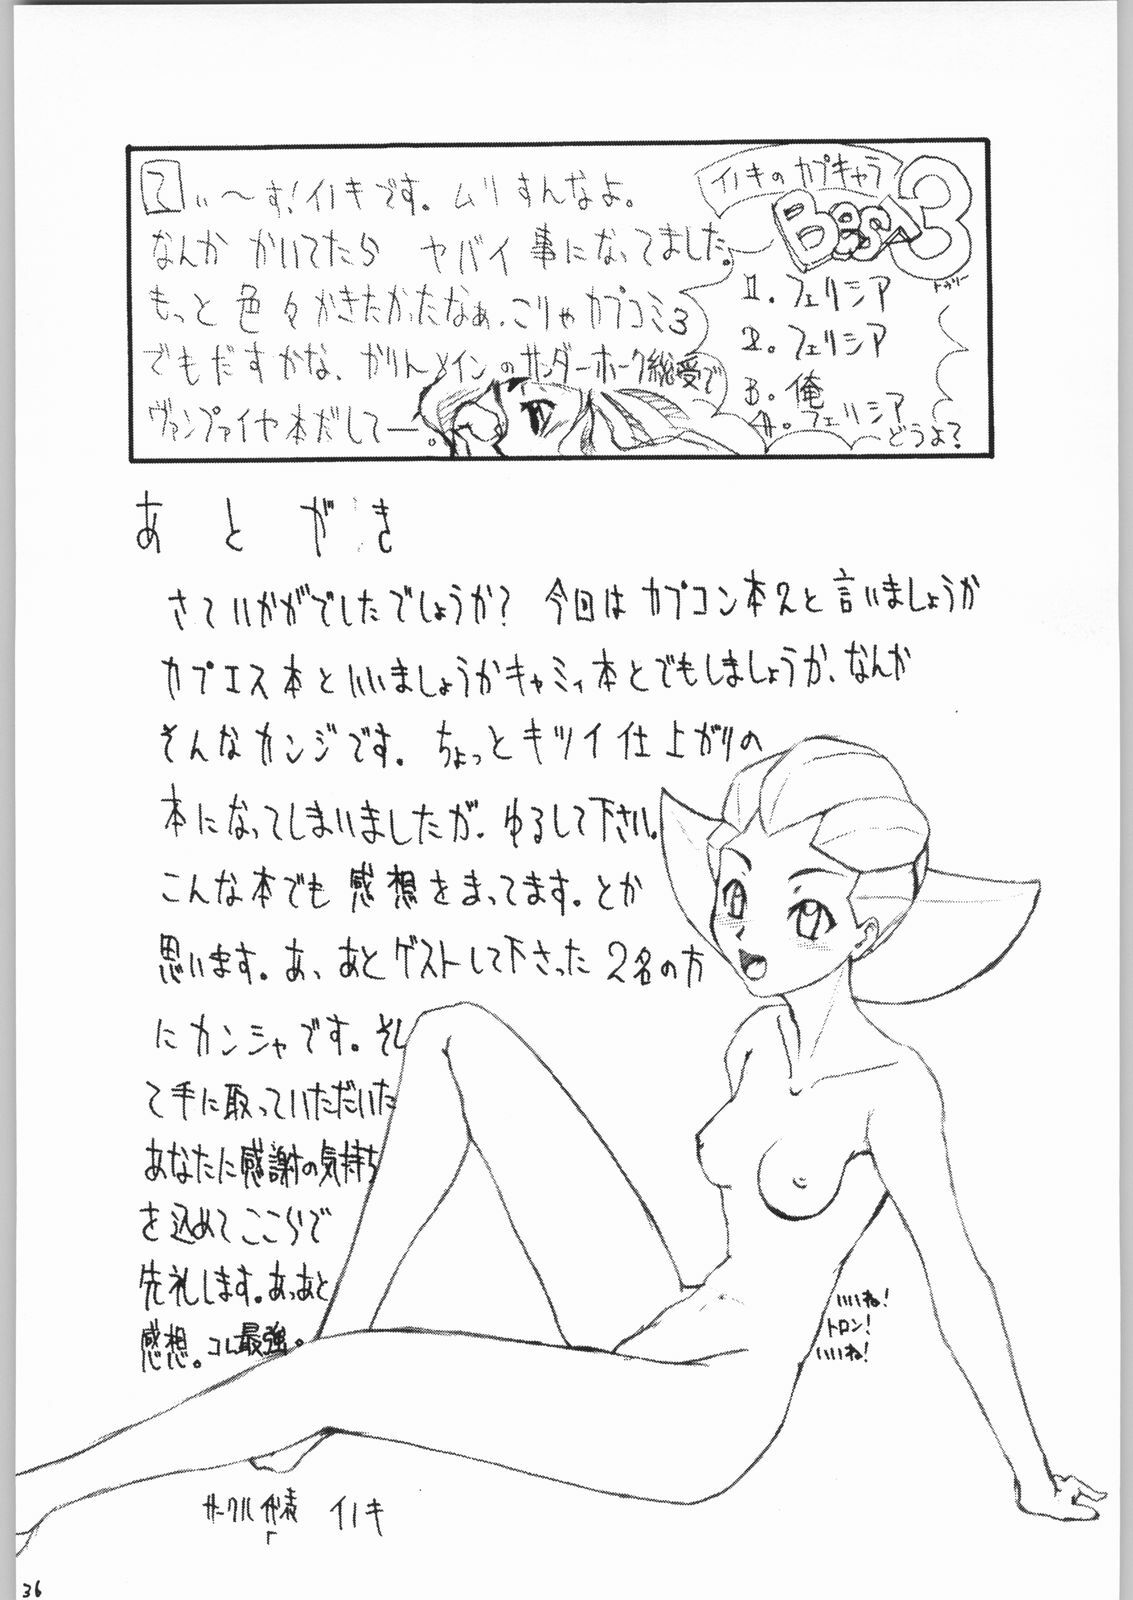 てぃ〜す!イノキです。ムリすんなよ。
なんか かいてたら ヤバイ事になってました。
もっと色々かきたかったなぁ。こりゃカプコミ3
でもだすかな、かりんメインのサンダーホーク総受で
ヴァンプァイヤ本だしてー。
イノキの カプキャラ
Best 3
トゥリー
1. フェリシア
2. フェリシア
3. 俺
4. フェリシア
どうよ?
あとがき
さていかがでしたでしょうか? 今回はカプコン本2と言いましょうか
カプエス本といいましょうかキャミィ本とでもしましょうか、なんか
そんなカンジです。ちょっとキツイ仕上がりの
本になってしまいましたが、ゆるして下さい。
こんな本でも感想をまってます。とか
思います。あ、あとゲストして下さった2名の方
にカンシャです。そし
て手に取っていただいた
あなたに感謝の気持ち
を込めてここらで
先礼します。あっあと
感想。コレ最強。
いいね!
トロン!
いいね!
サークル代表 イノキ
36